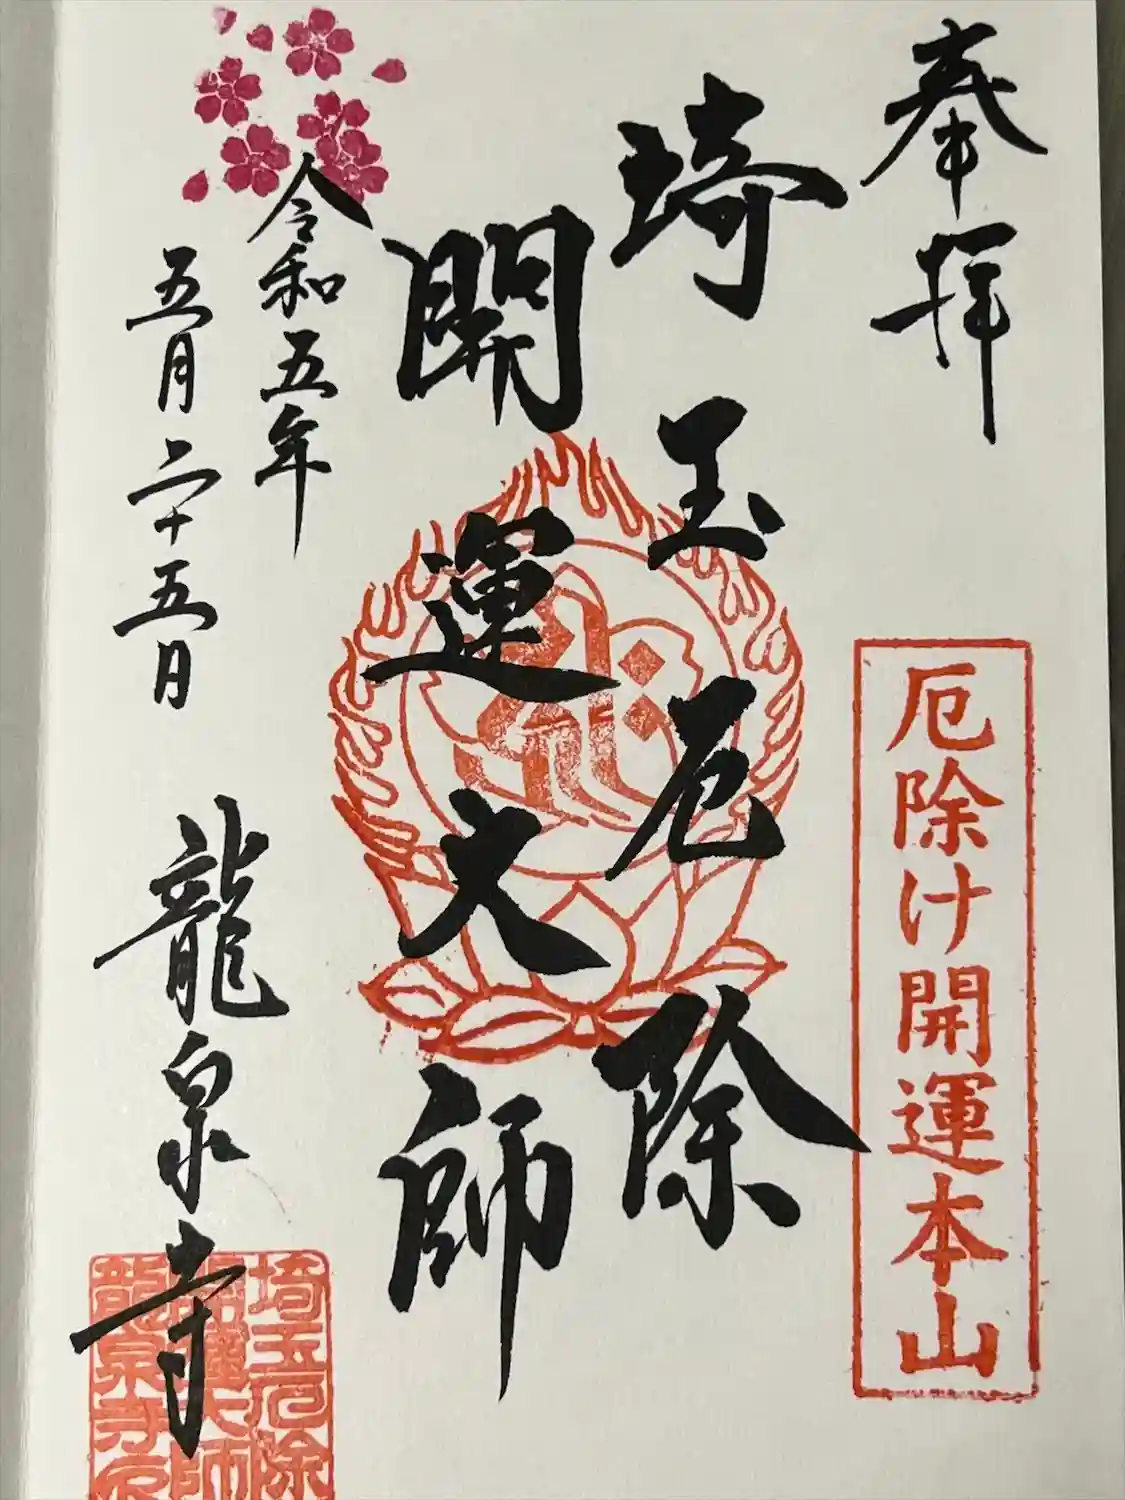 奉拝
厄除け開運本山
埼玉厄除
開運大師
令和五年
五月二十五日
龍泉寺
埼玉厄除
開運大師
龍泉寺